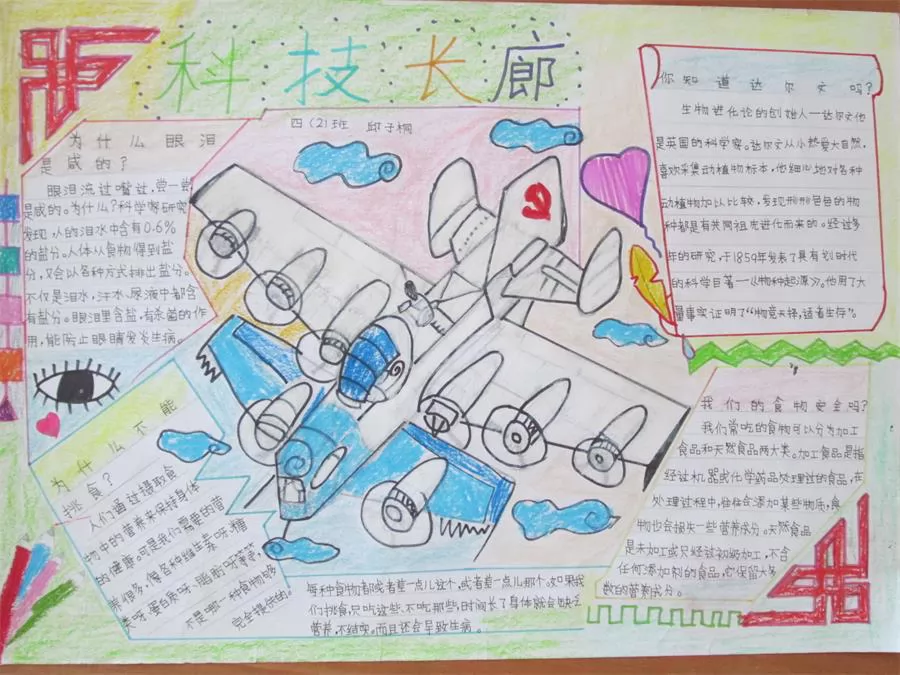 科技长廊
四（2）班 邱子桐
为什么眼泪
是咸的？
眼泪流过嘴过，尝一尝
是咸的。为什么？科学家研究
发现，人的泪水中含有0.6%
的盐分。人体从食物得到盐
分，又会以各种方式排出盐分。
不仅是泪水，汗水、尿液中都含
有盐分。眼泪里含盐，有杀菌的作
用，能防止眼睛发炎生病。
你知道达尔文吗？
生物进化论的创始人—达尔文他
是英国的科学家。达尔文从小热爱大自然，
喜欢采集动植物标本，他细心地对各种
动植物加以比较，发现形形色色的物
种都是有共同祖先进化而来的。经过多
年的研究，于1859年发表了具有划时代
的科学巨著—《物种起源》。他用了大
量事实证明了“物竞天择，适者生存”。
为什么不能
挑食？
人们通过摄取食
物中的营养来保持身体
的健康。可是我们需要的营
养很多，像各种维生素呀、糖
类呀、蛋白质呀、脂肪呀等等，
不是哪一种食物够
完全提供的。
每种食物都或者差一点儿这个，或者差一点儿那个。如果我
们挑食，只吃这些、不吃那些，时间长了身体就会缺乏
营养，不结实。而且还会导致生病。
我们的食物安全吗？
我们常吃的食物可以分为加工
食品和天然食品两大类。加工食品是指
经过机器或化学药品处理过的食品，在
处理过程中，往往会添加某些物质，食
物也会损失一些营养成分。天然食品
是未加工或只经过初级加工，不含
任何添加剂的食品，它保留大多
数的营养成分。